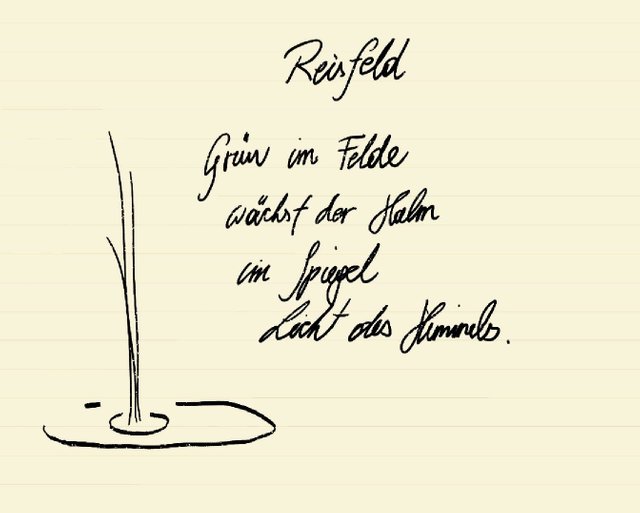 Reisfeld
Grün im Felde
wächst der Halm
im Spiegel
Licht des Himmels.